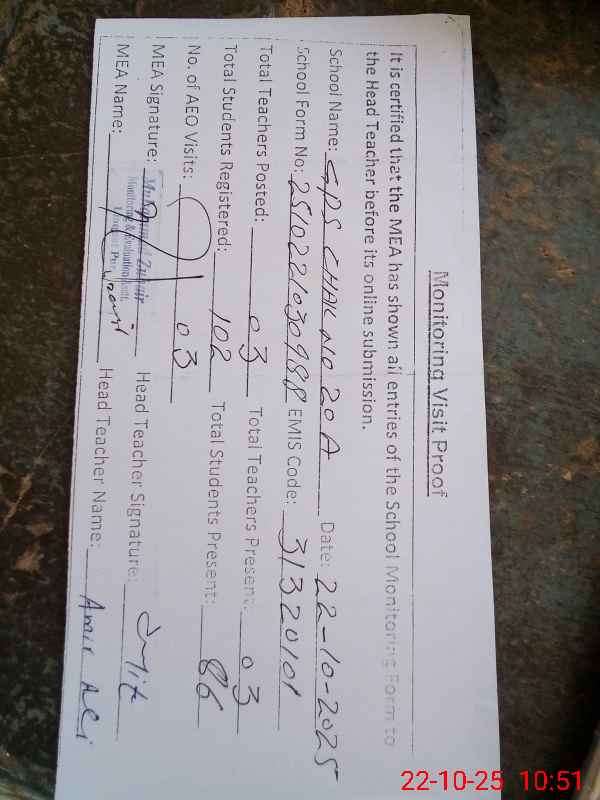 Monitoring Visit Proof
It is certified that the MEA has shown all entries of the School Monitoring Form to
the Head Teacher before its online submission.
School Name: GPS CHAK NO 20A Date: 22-10-2025
School Form No: 2510221030988 EMIS Code: 31320101
Total Teachers Posted: 03 Total Teachers Present: 03
Total Students Registered: 102 Total Students Present: 86
No. of AEO Visits: 03
MEA Signature: Head Teacher Signature: Amir
Muhammad Zubair
Monitoring & Evaluation Assis
MEA Name: Head Teacher Name: Amir Ali
22-10-25 10:51